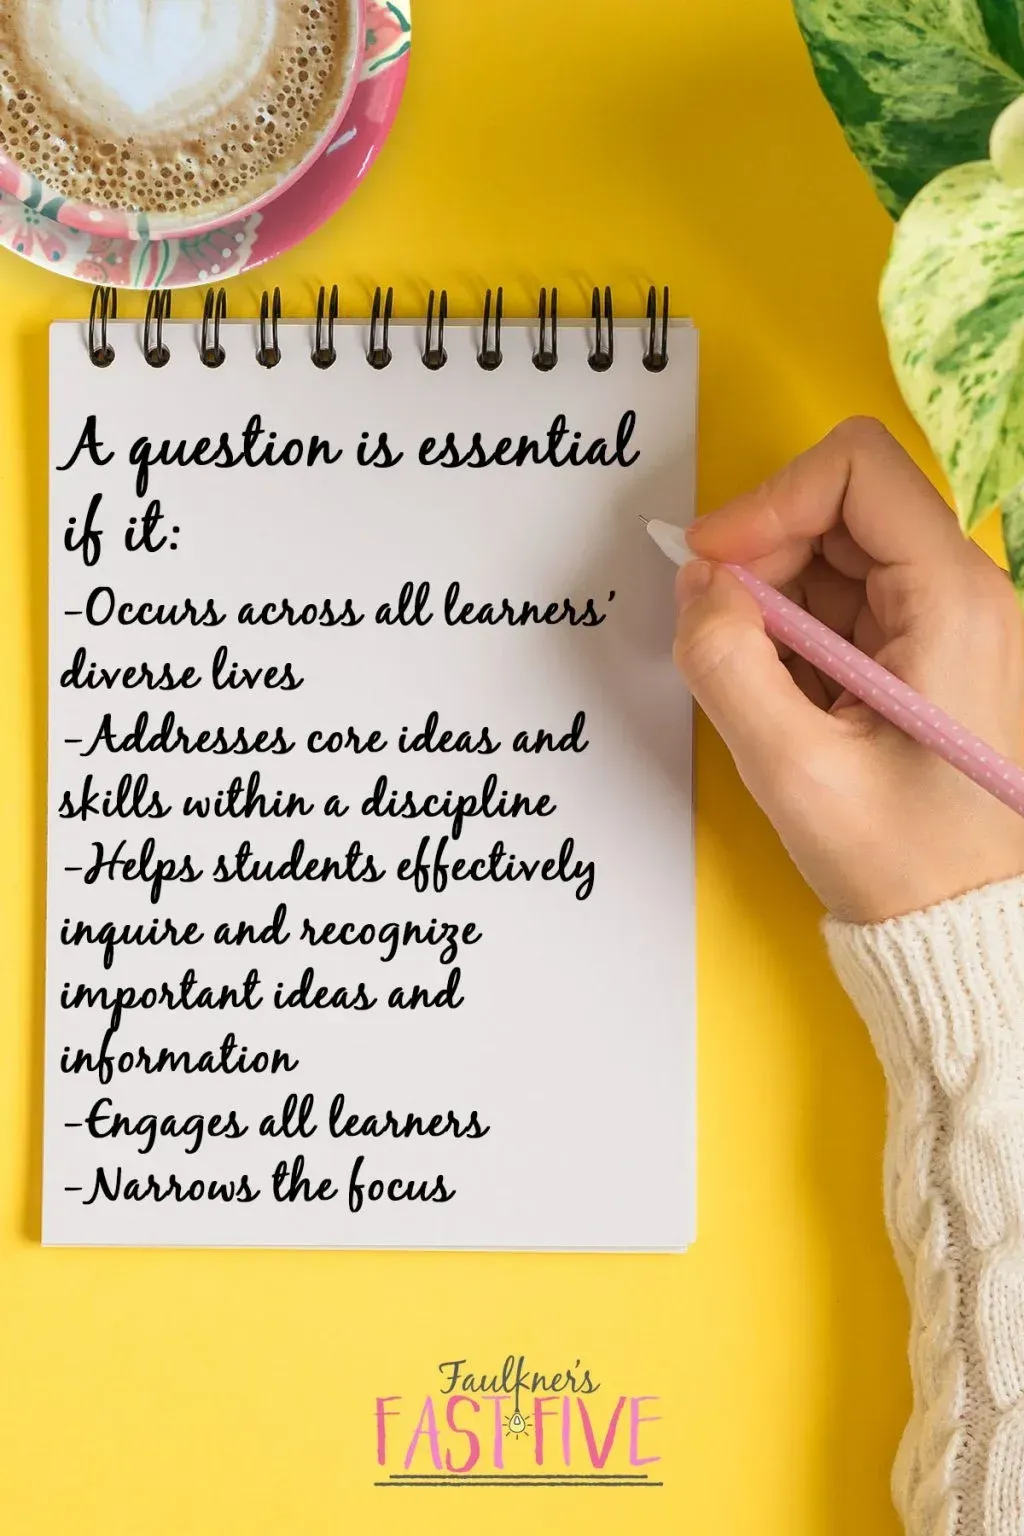 A question is essential
if it:
-Occurs across all learners'
diverse lives
-Addresses core ideas and
skills within a discipline
-Helps students effectively
inquire and recognize
important ideas and
information
-Engages all learners
-Narrows the focus
Faulkner's
FAST FIVE